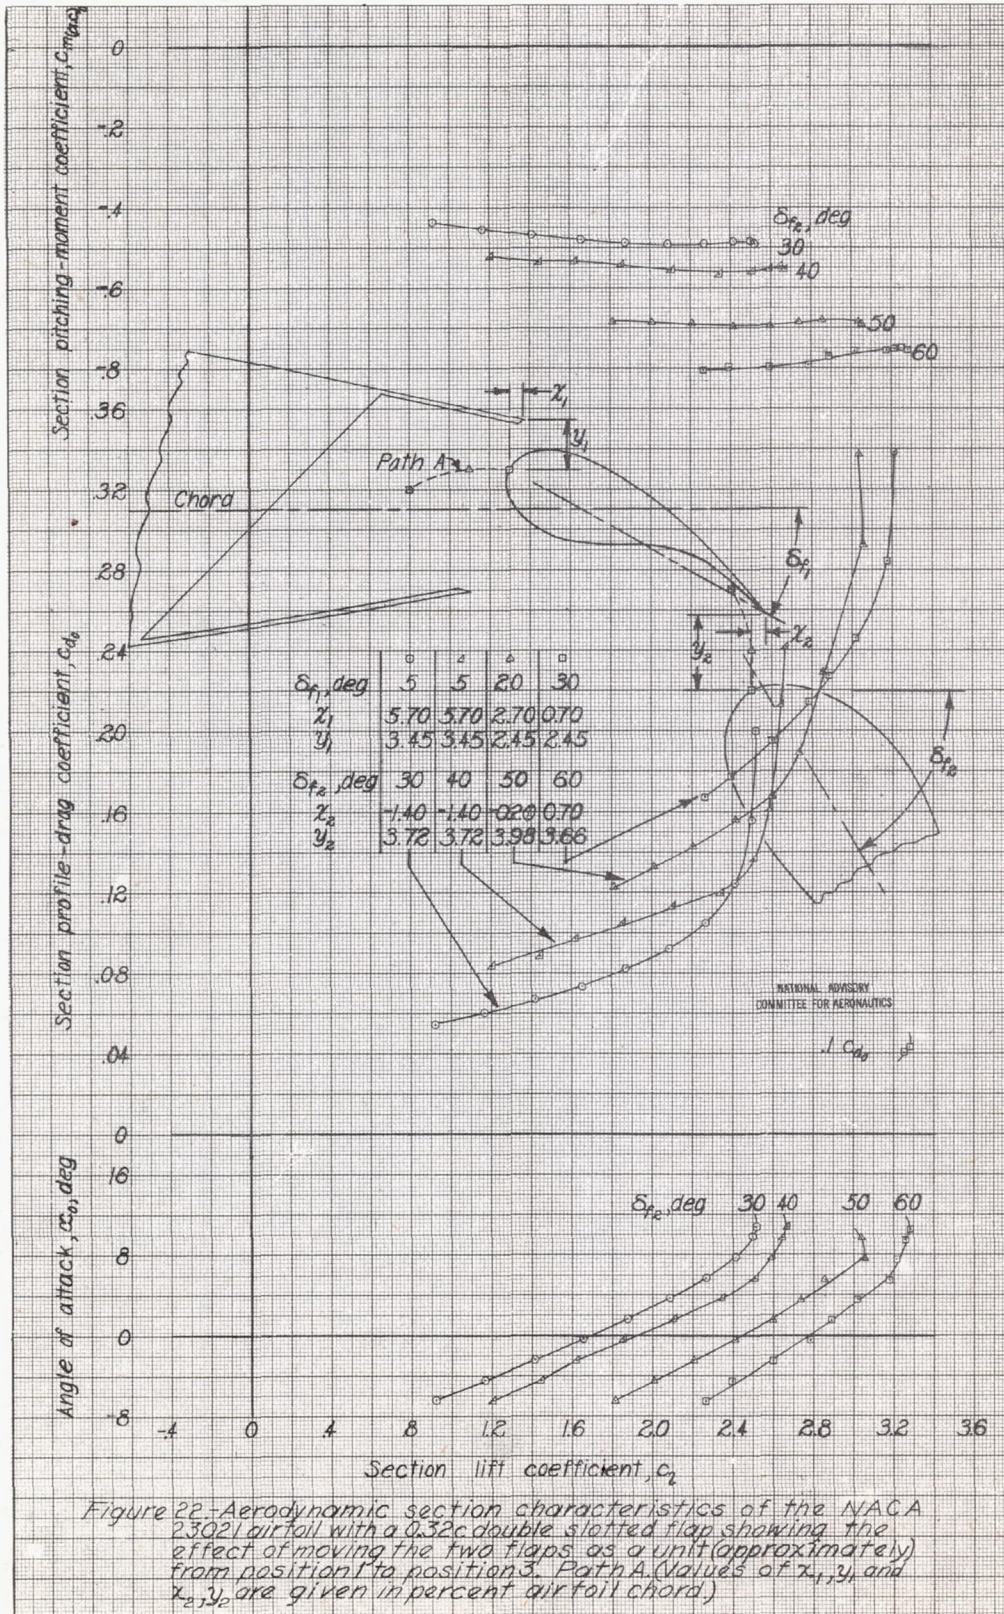 Section pitching-moment coefficient, Cm(a.c.)0
0
-.2
-.4
-.6
-.8
δf2, deg
30
40
50
60
Section profile-drag coefficient, cd0
.36
.32
.28
.24
.20
.16
.12
.08
.04
0
x1
y1
Path A
Chord
δf1
y2
x2
δf2
δf1, deg 5 5 20 30
x1 5.70 5.70 2.70 0.70
y1 3.45 3.45 2.45 2.45
δf2, deg 30 40 50 60
x2 -1.40 -1.40 -0.20 0.70
y2 3.72 3.72 3.98 3.66
NATIONAL ADVISORY
COMMITTEE FOR AERONAUTICS
.1 Cd0
Angle of attack, α0, deg
16
8
0
-8
δf2, deg 30 40 50 60
-.4 0 .4 .8 1.2 1.6 2.0 2.4 2.8 3.2 3.6
Section lift coefficient, cl
Figure 22.-Aerodynamic section characteristics of the NACA
23021 airfoil with a 0.32c double slotted flap showing the
effect of moving the two flaps as a unit (approximately)
from position 1 to position 3. Path A. (Values of x1, y1 and
x2, y2 are given in percent airfoil chord)